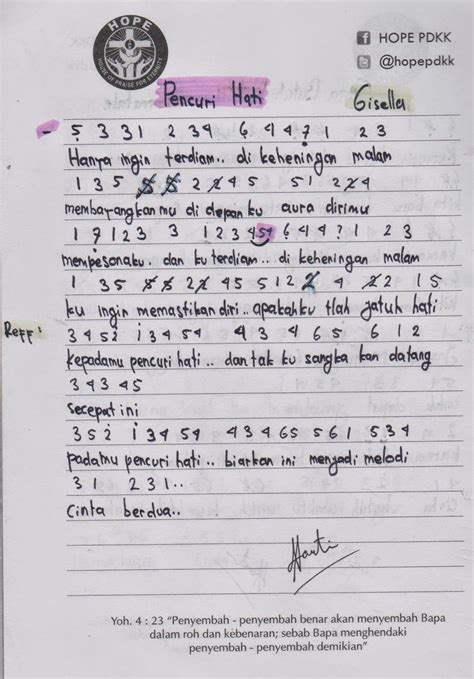 HOPE
HOUSE OF PRAISE FOR ETERNITY
HOPE PDKK
@hopepdkk
Pencuri Hati
Gisella
- 5 3 3 1 2 3 4 6 4 4 7 1 2 3
Hanya ingin terdiam.. di keheningan malam
1 3 5 5 5 2 2 4 5 5 1 2 2 4
membayangkanmu di depan ku aura dirimu
1 7 1 2 3 3 1 2 3 4 5 4 6 4 4 7 1 2 3
mempesonaku. dan ku terdiam.. di keheningan malam
1 3 5 5 5 2 2 4 5 5 1 2 2 4 2 2 1 5
ku ingin memastikan diri.. apakahku tlah jatuh hati
Reff:
3 4 5 2 1 3 4 5 4 4 3 4 6 5 6 1 2
kepadamu pencuri hati.. dan tak ku sangka kan datang
3 4 3 4 5
secepat ini
3 5 2 1 3 4 5 4 4 3 4 6 5 5 6 1 5 3 4
padamu pencuri hati.. biarkan ini menjadi melodi
3 1 2 3 1..
Cinta berdua..
Yoh. 4 : 23 "Penyembah - penyembah benar akan menyembah Bapa
dalam roh dan kebenaran; sebab Bapa menghendaki
penyembah - penyembah demikian"